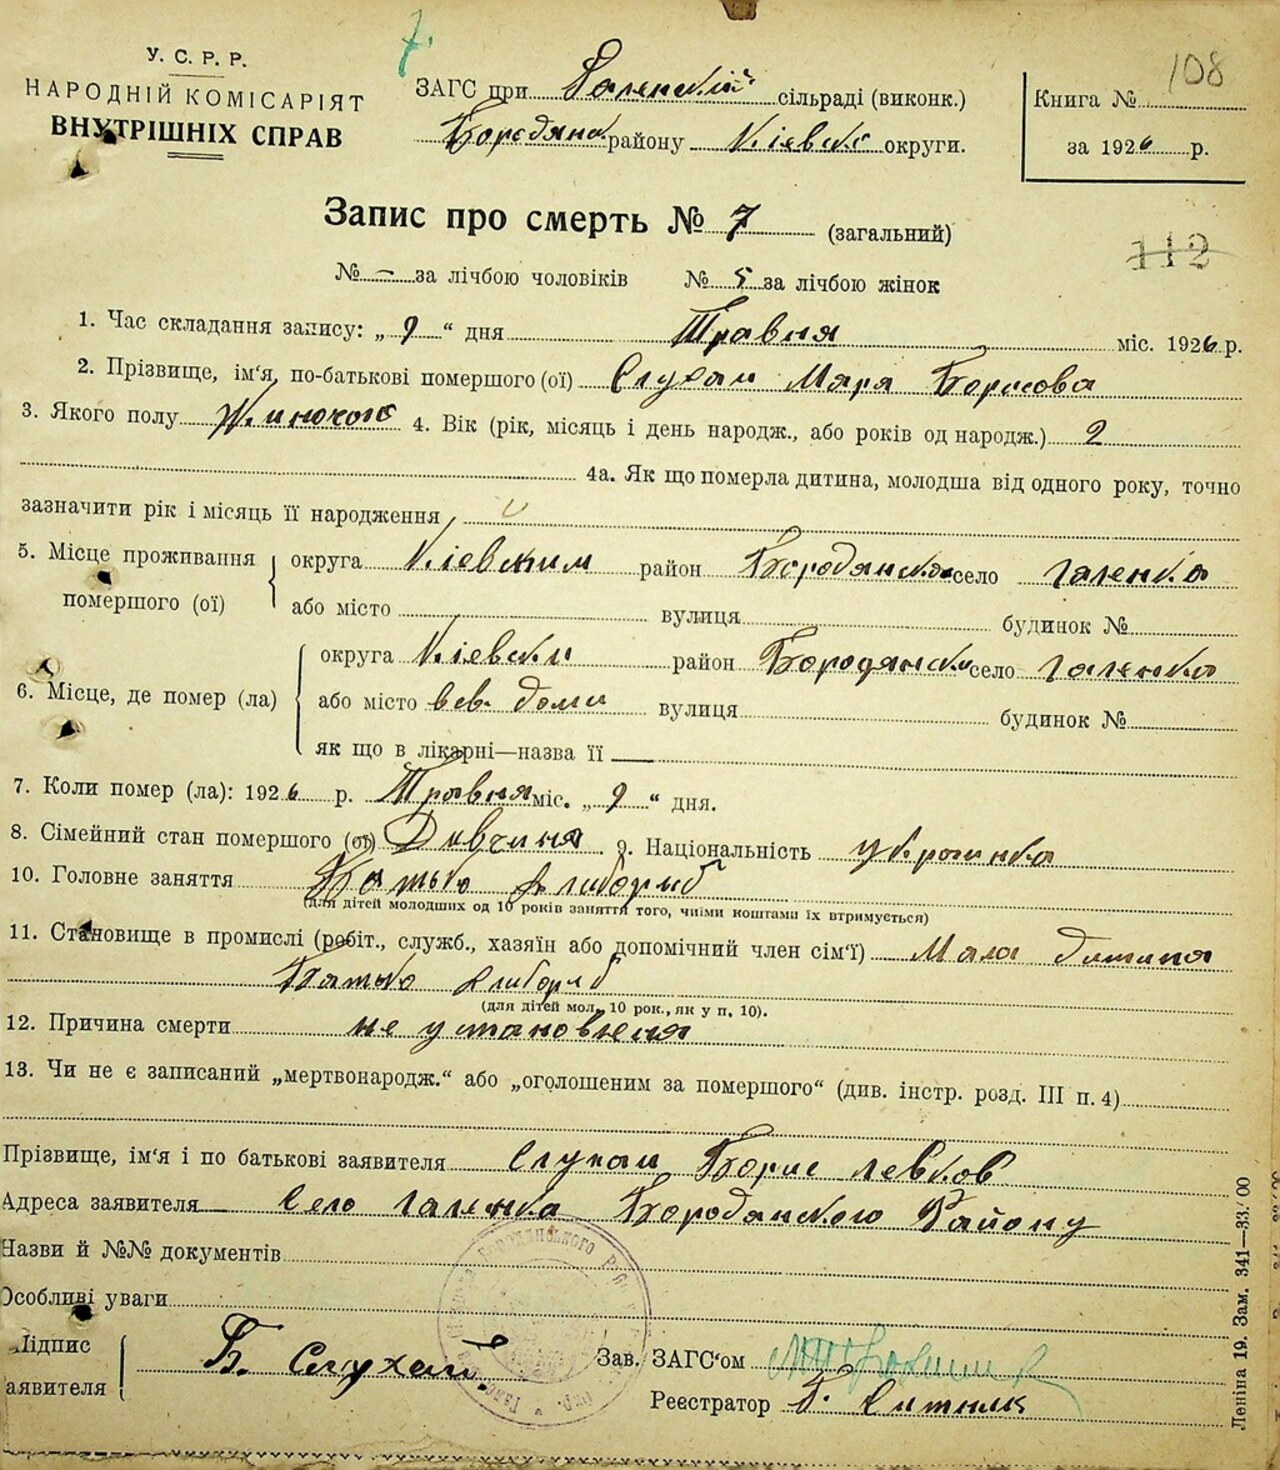 7.
У. С. Р. Р.
НАРОДНІЙ КОМІСАРІЯТ
ВНУТРІШНІХ СПРАВ
ЗАГС при Галенскій сільраді (виконк.)
Бородянс. району Кіевскої округи.
108
Книга №
за 1926 р.
Запис про смерть № 7 (загальний)
112
№ – за лічбою чоловіків № 5 за лічбою жінок
1. Час складання запису: „ 9 “ дня Травня міс. 1926 р.
2. Прізвище, ім‘я, по-батькові помершого (ої) Слухай Маря Борисова
3. Якого полу Жиночого 4. Вік (рік, місяць і день народж., або років од народж.) 2
4а. Як що померла дитина, молодша від одного року, точно
зазначити рік і місяць її народження
5. Місце проживання помершого (ої) округа Кіевским район Бородянська село Галенка
або місто вулиця будинок №
6. Місце, де помер (ла) округа Кіевски район Бородянски село Галенка
або місто в св. доми вулиця будинок №
як що в лікарні—назва її
7. Коли помер (ла): 1926 р. Травня міс. „ 9 “ дня.
8. Сімейний стан помершого (ої) Дивчиня . 9. Національність украинка
10. Головне заняття Батько хлибориб
(для дітей молодших од 10 років заняття того, чиїми коштами їх втримується)
11. Становище в промислі (робіт., служб., хазяїн або допомічний член сім‘ї) Мала дитина
Батько хлибориб
(для дітей мол. 10 рок., як у п. 10).
12. Причина смерти не установленя
13. Чи не є записаний „мертвонародж.“ або „оголошеним за помершого“ (див. інстр. розд. III п. 4)
Прізвище, ім‘я і по батькові заявителя Слухай Борис Левков
Адреса заявителя Село Галенка Бородянского Району
Назви й №№ документів
Особливі уваги
Підпис заявителя Б. Слухай
Зав. ЗАГС‘ом
Реєстратор Г. Ситник
Леніна 19. Зам. 341—33.00